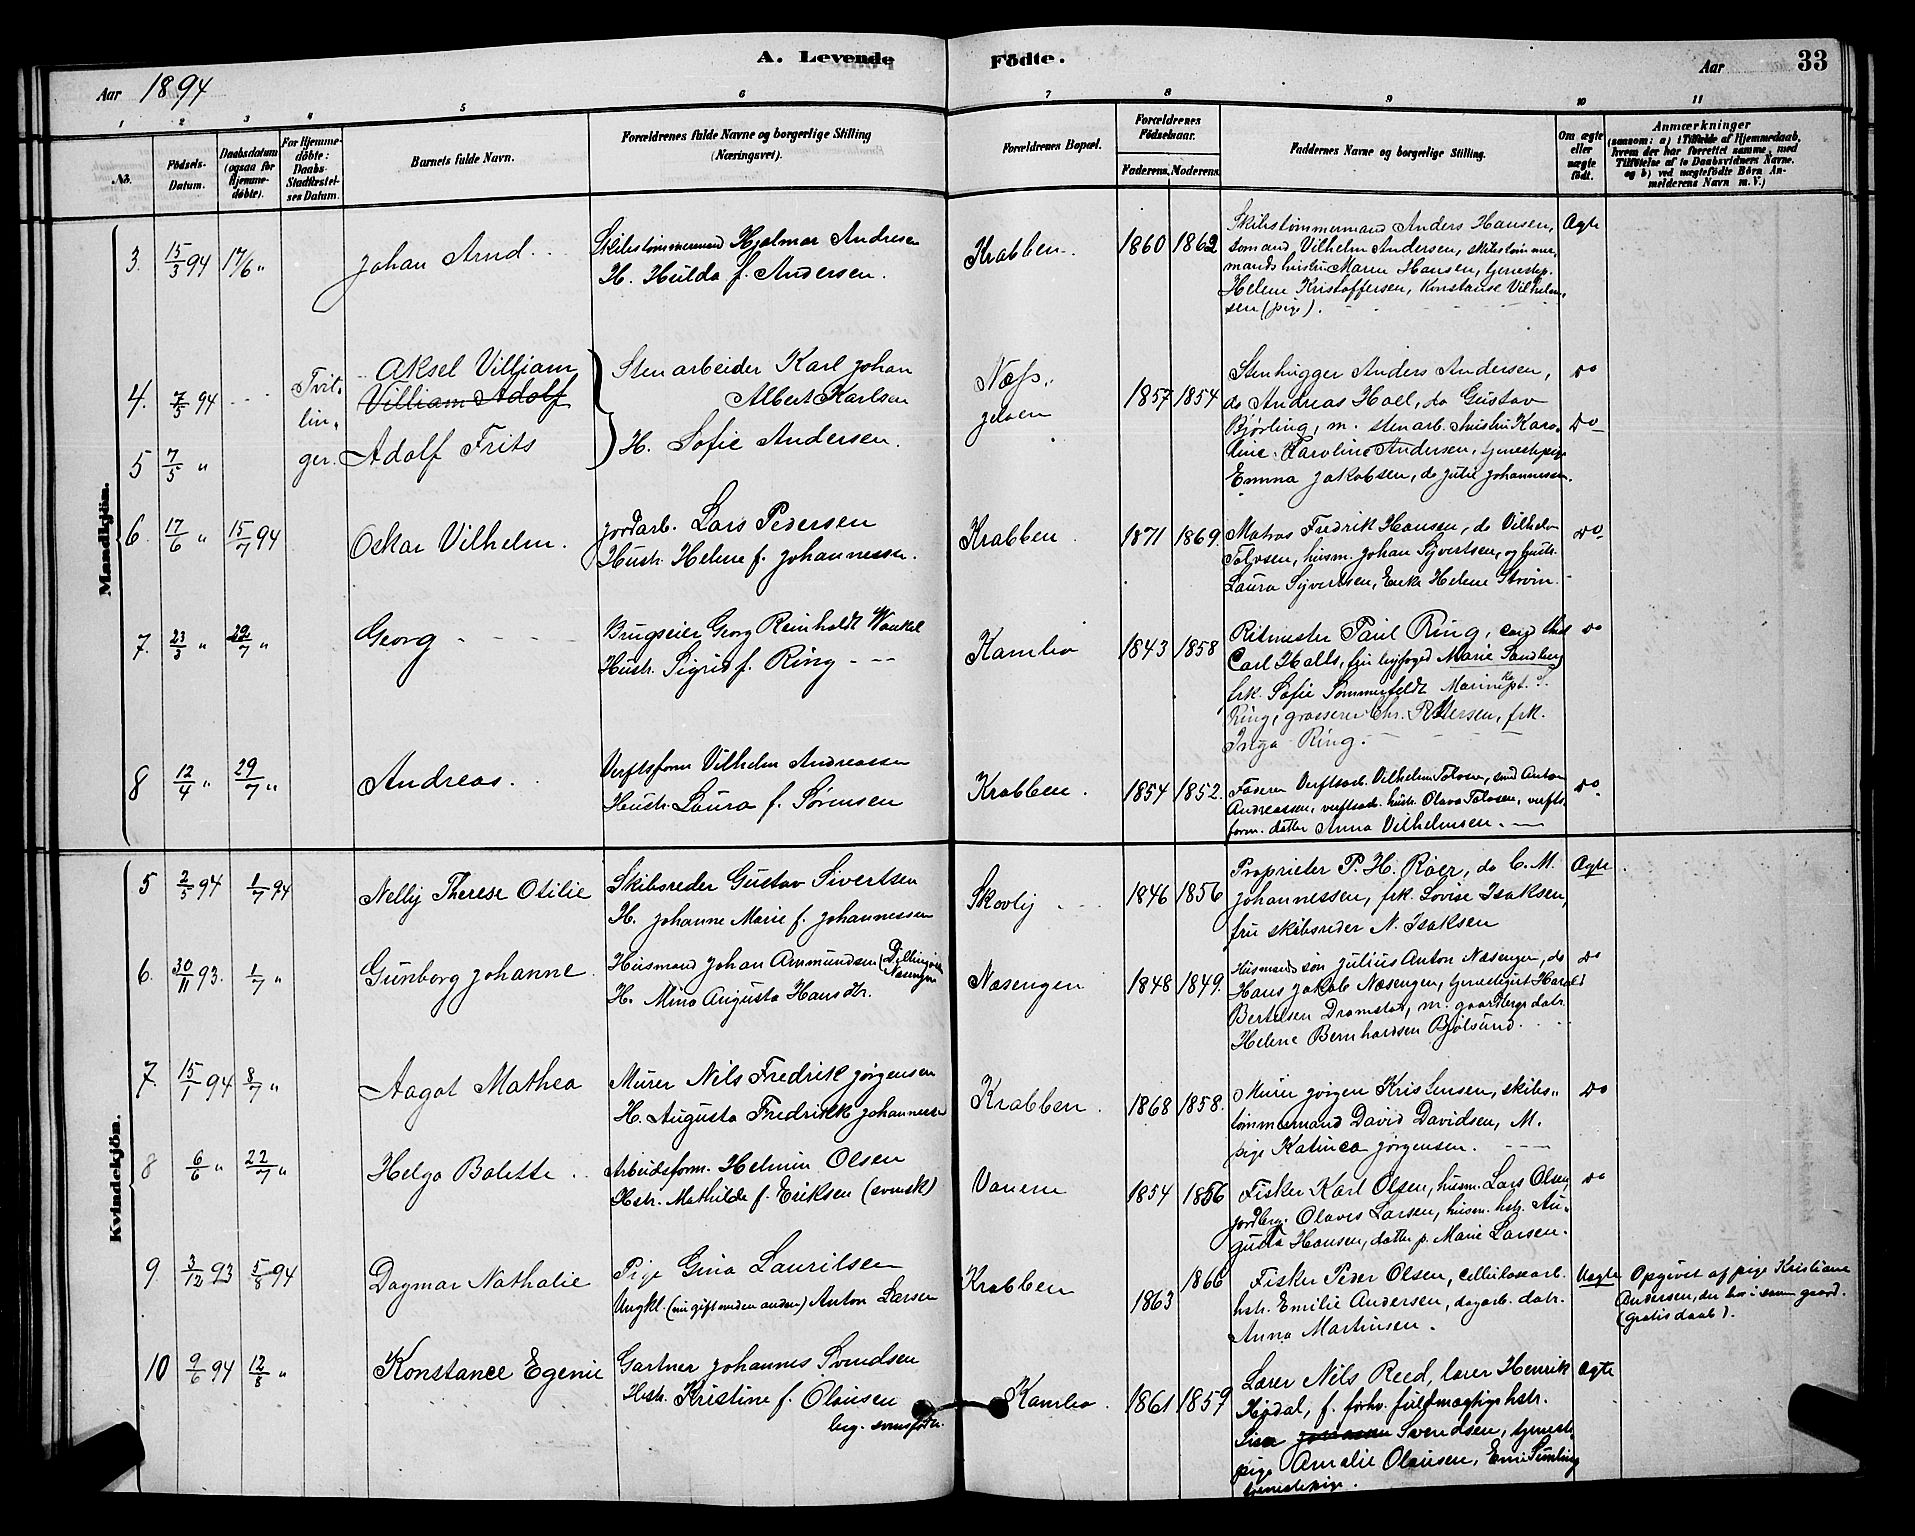 A. Levende Födte.
33
Aar 1894
Aar
1 2 3 4 5 6 7 8 9 10 11
No.
Födsels-Datum.
Daabsdatum (ogsaa for Hjemme-döbte).
For Hjemme-döbte: Daabs-Stadfæstel-ses Datum.
Barnets fulde Navn.
Forældrenes fulde Navne og borgerlige Stilling (Næringsvei).
Forældrenes Bopæl.
Forældrenes Födselsaar.
Faderens. Moderens.
Faddernes Navne og borgerlige Stilling.
Om ægte eller uægte födt.
Anmærkninger
(saasom: a) i Tilfælde af Hjemmedaab, hvem der har forrettet samme, med Tilföielse af to Daabsvidners Navne. og b) ved uægtefödte Börn An-melderens Navn m. V.)
Mandkjön.
3. 15/3 94 17/6 " Johan Arnd
Skibstømmermand Hjalmar Andresen
H. Hulda f. Andersen.
Krabben. 1860 1862
Skibstømmermand Anders Hansen,
sømand Vilhelm Andersen, skibstømmer
mands hustru Maren Hansen, tjenestep.
Helene Kristoffersen, Konstanse Vilhelm
sen (pige).
Ægte
4. 7/5 94 Tvil-
lin-
ger.
Aksel Villiam
Villiam Adolf
5 7/5 " Adolf Frits
Stenarbeider Karl Johan
Albert Karlsen
H. Sofie Andersen.
Næs
jeløen
1857 1854
Stenhugger Anders Andersen,
do Andreas Hoel, do Gustav
Bjørling, m. stenarb. hustru Karo-
line Karoline Andersen, tjenestepige
Emma Jakobsen, do Julie Johannessen.
do
do
6. 17/6 " 15/7 94 Oskar Vilhelm.
Jordarb. Lars Pedersen
Hustr. Helene f. Johannessen.
Krabben 1871 1869.
Matros Fredrik Hansen, do Vilhelm
Tolvsen, husm. Johan Syvertsen, og hustr.
Laura Syvertsen, Enke Helene
do
7. 23/3 " 29/7 " Georg
Brugseier Georg Reinholdt Wankel
Hustr. Sigrid f. Ring
Kambo 1843 1858
Ritmester Paul Ring, cand
Carl Halls, fru byfoged Marie Sandberg
frk. Sofie Sommerfeldt Marinekpt.
Ring, grosserer Chr. Petersen, frk.
Inga Ring.
do
8 12/4 " 29/7 " Andreas.
Verftsform Vilhelm Andreassen
Hustr. Laura f. Sørensen
Krabben. 1854 1852.
Faderen Verftsarb. Vilhelm Tolvsen, smd Anton
Andreassen, verftsarb. hustr. Olava Tolvsen, verfts
form. datter Anna Vilhelmsen.
do
Kvindekjön.
5 2/5 94 1/7 94 Nellij Therese Otilie
Skibsreder Gustav Sivertsen
H. Johanne Marie f. Johannessen
Skovlij 1846 1856
Proprietær P. H. Røer, do C. M.
Johannessen, frk. Lovise Isaksen,
fru skibsreder N. Isaksen
Ægte
6. 30/11 93. 1/7 " Gunborg Johanne
Husmand Johan Ammundsen (Dillingøen
Næsengen
H. Mina Augusta Hansdtr.
Næsengen 1848 1849.
Husmands søn Julius Anton Næsengen, do
Hans Jakob Næsengen, tjenestegut Harald
Bertelsen Dramstad, m. gaardbrgs datr.
Helene Bernhardsen Bjølsund.
do
7. 15/1 94 8/7 " Aagot Mathea
Murer Nils Fredrik Jørgensen
H. Augusta Fredrikk Johannessen
Krabben. 1868 1858.
Murer Jørgen Kristensen, skibs-
tømmermand David Davidsen, M.
pige Katinca Jørgensen.
do
8 6/6 " 22/7 " Helga Bolette
Arbeidsform. Helmin Olsen
Hstr. Mathilde f. Eriksen (svensk)
Vanem 1854 1856
Fisker Karl Olsen, husm. Lars Olsen
jordbrg. Olaves Larsen, husm. hstr. Au-
gusta Hansen, datter p. Marie Larsen.
do
9. 3/12 93 5/8 94 Dagmar Nathalie
Pige Gina Lauritsen
Ungkl. (nu gift anden) Anton Larsen
Krabben 1863 1866
Fisker Peder Olsen, cellulosearb.
hstr. Emilie Andersen, dagarb. datr.
Anna Martinsen.
Uægte
Opgivet af pige Kristiane
Andersen, der bor i samme gaard.
(gratis daab).
10 9/6 94 12/8 " Konstance Egenie
Gartner Johannes Svendsen
Hstr. Kristine f. Olausen
beg. svenskfødte.
Kambo. 1861 1859
Lærer Nils Reed, lærer Henrik
Kjødal, f. forhv. fuldmægtigs hstr.
Svendsen, tjeneste-
pige Amalie Olausen,
tjenestepige.
Ægte